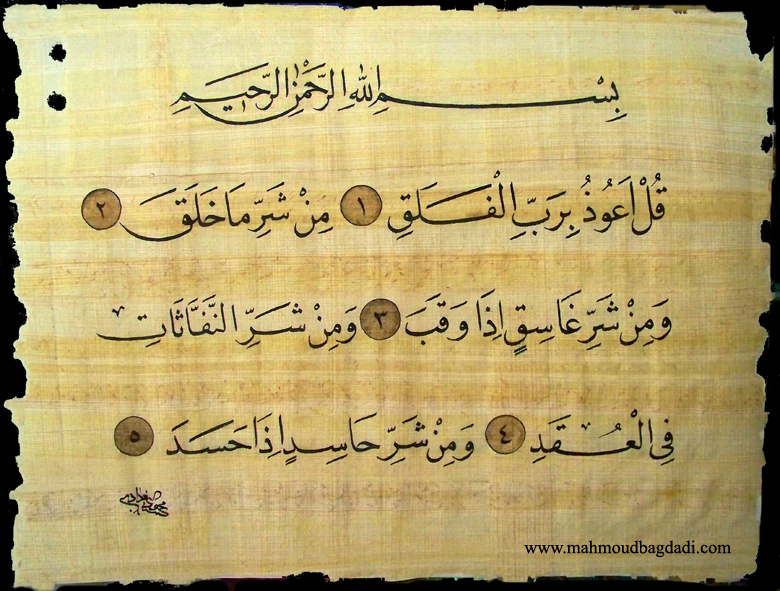 بِسْمِ اللهِ الرَّحْمٰنِ الرَّحِيمِ
قُلْ اَعُوذُ بِرَبِّ الْفَلَقِ ١ مِنْ شَرِّ مَا خَلَقَ ٢
وَمِنْ شَرِّ غَاسِقٍ اِذَا وَقَبَ ٣ وَمِنْ شَرِّ النَّفَّاثَاتِ
فِى الْعُقَدِ ٤ وَمِنْ شَرِّ حَاسِدٍ اِذَا حَسَدَ ٥
www.mahmoudbagdadi.com